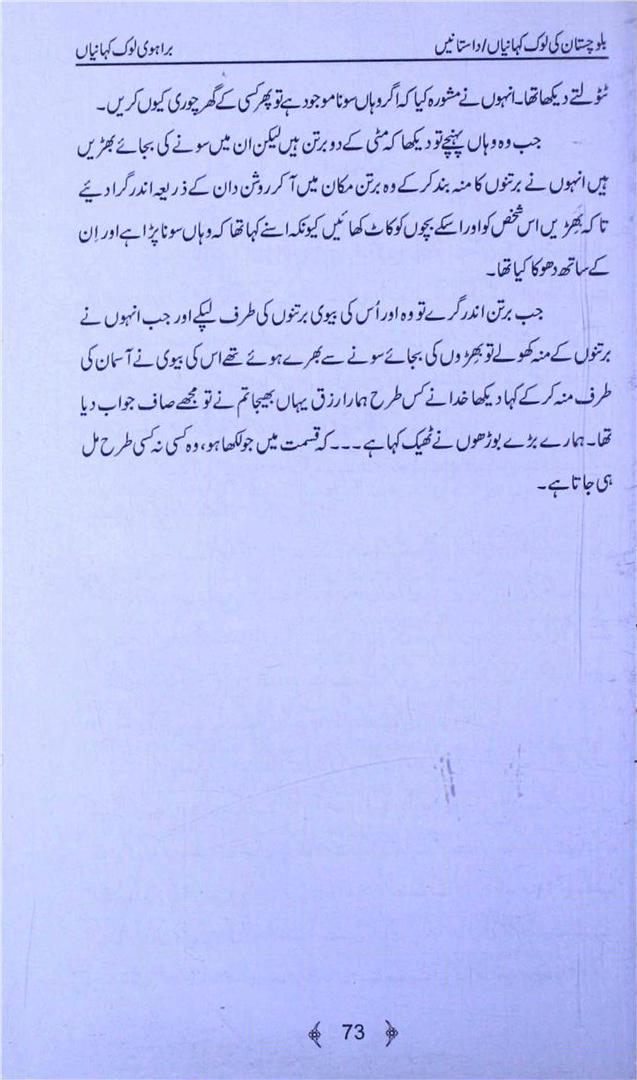 بلوچستان کی لوک کہانیاں/داستانیں براہوی لوک کہانیاں
ٹٹولتے دیکھا تھا۔ انہوں نے مشورہ کیا کہ اگر وہاں سونا موجود ہے تو پھر کسی کے گھر چوری کیوں کریں۔
جب وہ وہاں پہنچے تو دیکھا کہ مٹی کے دو برتن ہیں لیکن ان میں سونے کی بجائے بھڑیں
ہیں انہوں نے برتنوں کا منہ بند کر کے وہ برتن مکان میں آ کر روشن دان کے ذریعہ اندر گرا دیئے
تا کہ بھڑیں اس شخص کو اور اسکے بچوں کو کاٹ کھائیں کیونکہ اسنے کہا تھا کہ وہاں سونا پڑا ہے اور اِن
کے ساتھ دھوکا کیا تھا۔
جب برتن اندر گرے تو وہ اور اُس کی بیوی برتنوں کی طرف لپکے اور جب انہوں نے
برتنوں کے منہ کھولے تو بھڑوں کی بجائے سونے سے بھرے ہوئے تھے اس کی بیوی نے آسمان کی
طرف منہ کر کے کہا دیکھا خدا نے کس طرح ہمارا رزق یہاں بھیجا تم نے تو مجھے صاف جواب دیا
تھا۔ ہمارے بڑے بوڑھوں نے ٹھیک کہا ہے ۔۔۔ کہ قسمت میں جو لکھا ہو، وہ کسی نہ کسی طرح مل
ہی جاتا ہے۔
73